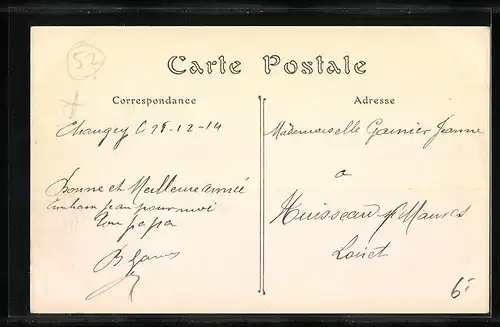 52
Carte Postale
Correspondance
Adresse
Changey 29-12-14
Mademoiselle Garnier Jeanne
Bonne et Meilleure année
à
pour moi
ton papa
Huisseau s/ Mauves
Loiret
6-